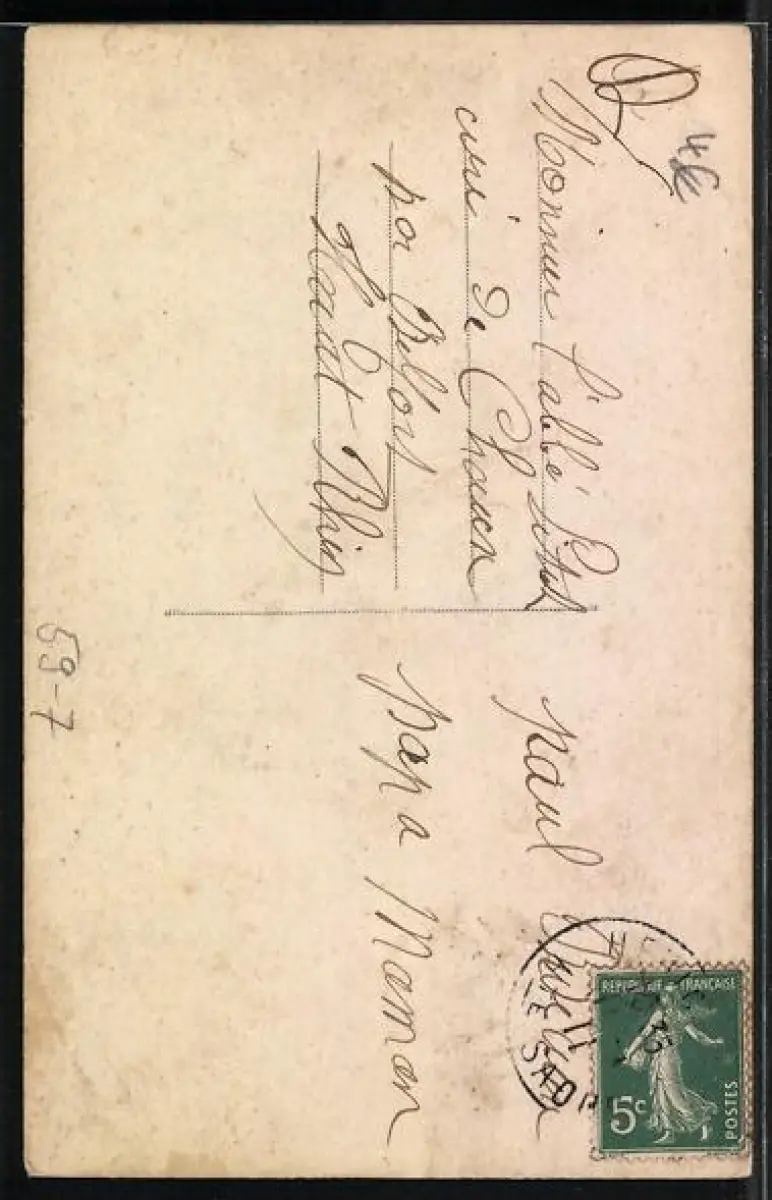 4€
Monsieur l'abbé
curé de Chaux
par Belfort
Haut Rhin
paul
papa Maman
REPUBLIQUE FRANÇAISE
5c
POSTES
59-7